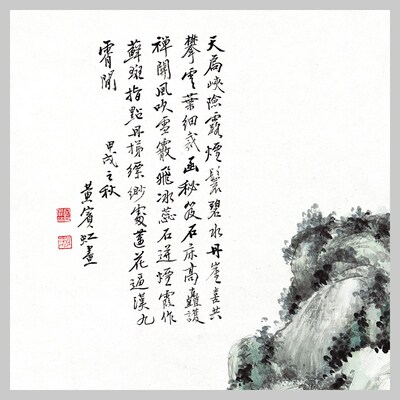 天扃峽險露煙鬟碧水丹崖喜共
攀雲葉細裁函秘笈石床高矗護
禪關風吹雪霰飛冰蕊石迸煙霞作
蘚斑指點丹梯縹緲處花逼漢九
霄間
甲戌之秋
黃賓虹畫